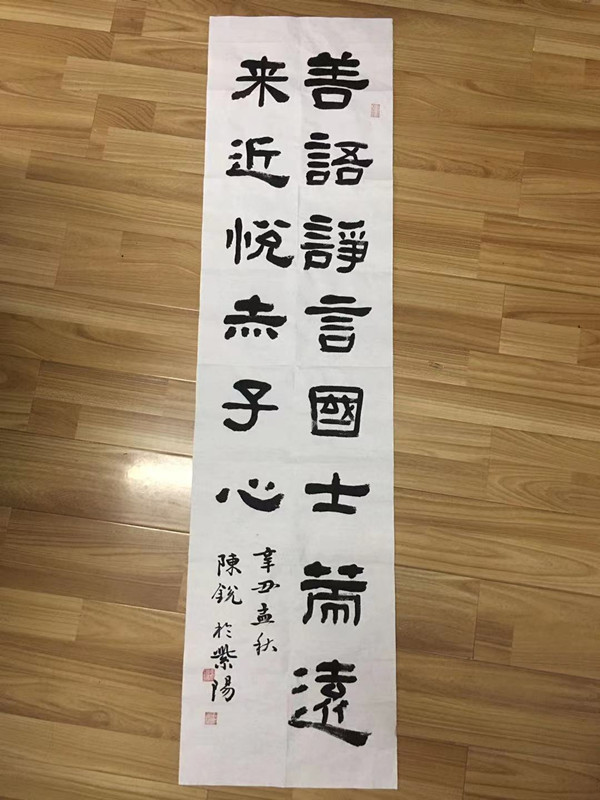 善語諍言國士篇遠
来近悅赤子心
辛丑孟秋
陳銳於紫陽